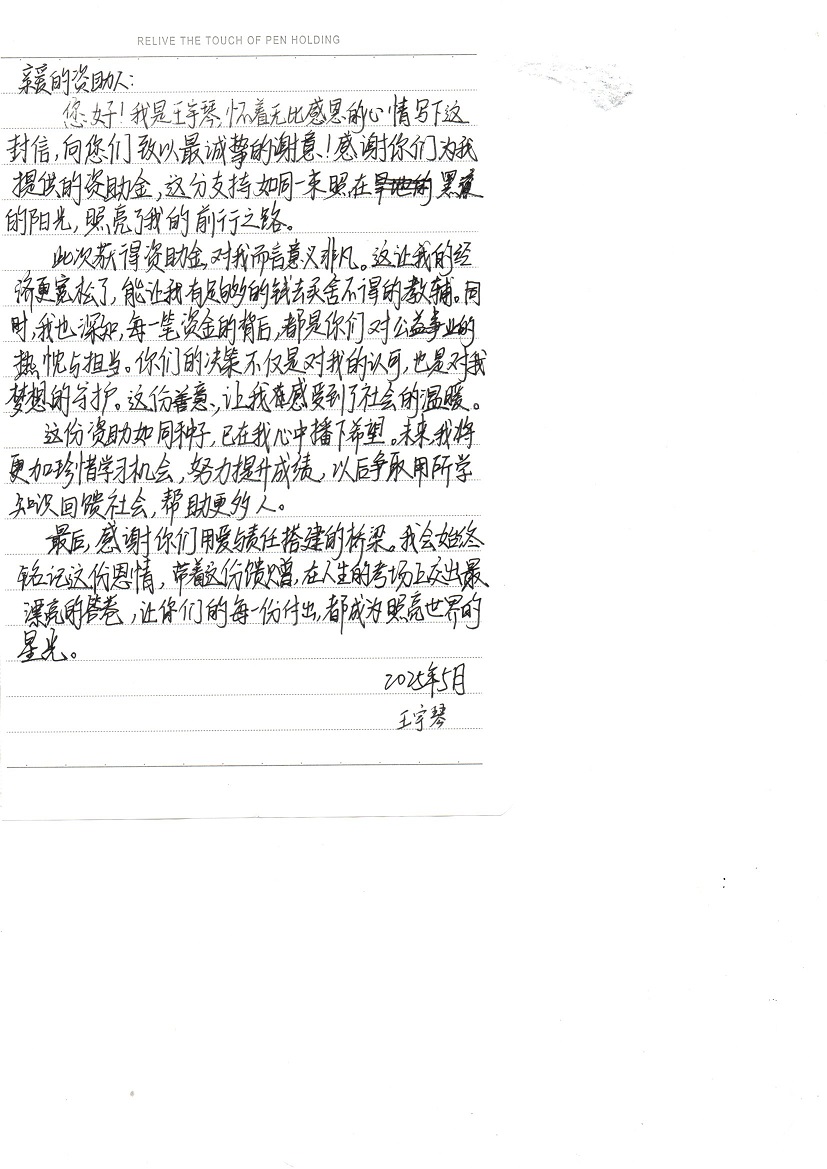 RELIVE THE TOUCH OF PEN HOLDING
亲爱的资助人：
您好！我是王宇琴，怀着无比感恩的心情写下这
封信，向您们致以最诚挚的谢意！感谢你们为我
提供的资助金，这分支持如同一束照在黑夜
的阳光，照亮了我的前行之路。
此次获得资助金，对我而言意义非凡。这让我的经
济更宽松了，能让我有足够多的钱去买舍不得的教辅。同
时，我也深知，每一笔资金的背后，都是你们对公益事业的
热忱与担当。你们的决策不仅是对我的认可，也是对我
梦想的守护。这份善意，让我感受到了社会的温暖。
这份资助如同种子，已在我心中播下希望。未来，我将
更加珍惜学习机会，努力提升成绩，以后争取用所学
知识回馈社会，帮助更多人。
最后，感谢你们用爱与责任搭建的桥梁。我会始终
铭记这份恩情，带着这份馈赠，在人生的考场上交出最
漂亮的答卷，让你们的每一份付出，都成为照亮世界的
星光。
2025年5月
王宇琴